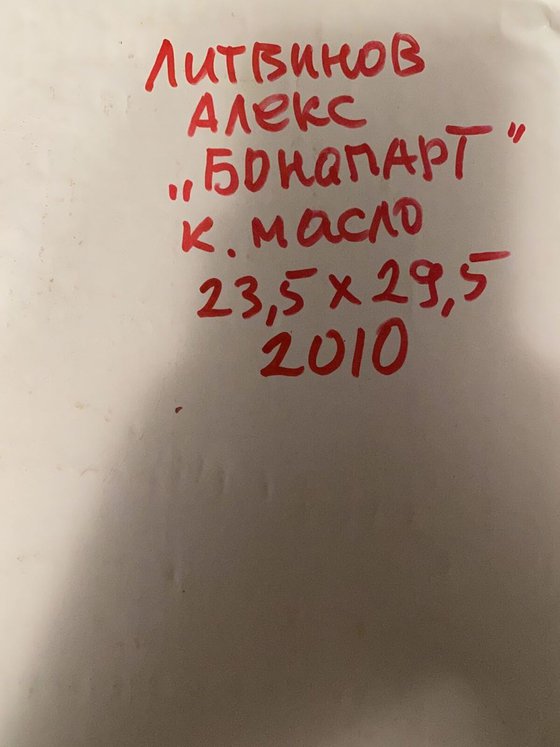 ЛИТВИНОВ
АЛЕКС
„БОНАПАРТ"
К. МАСЛО
23,5 х 29,5
2010